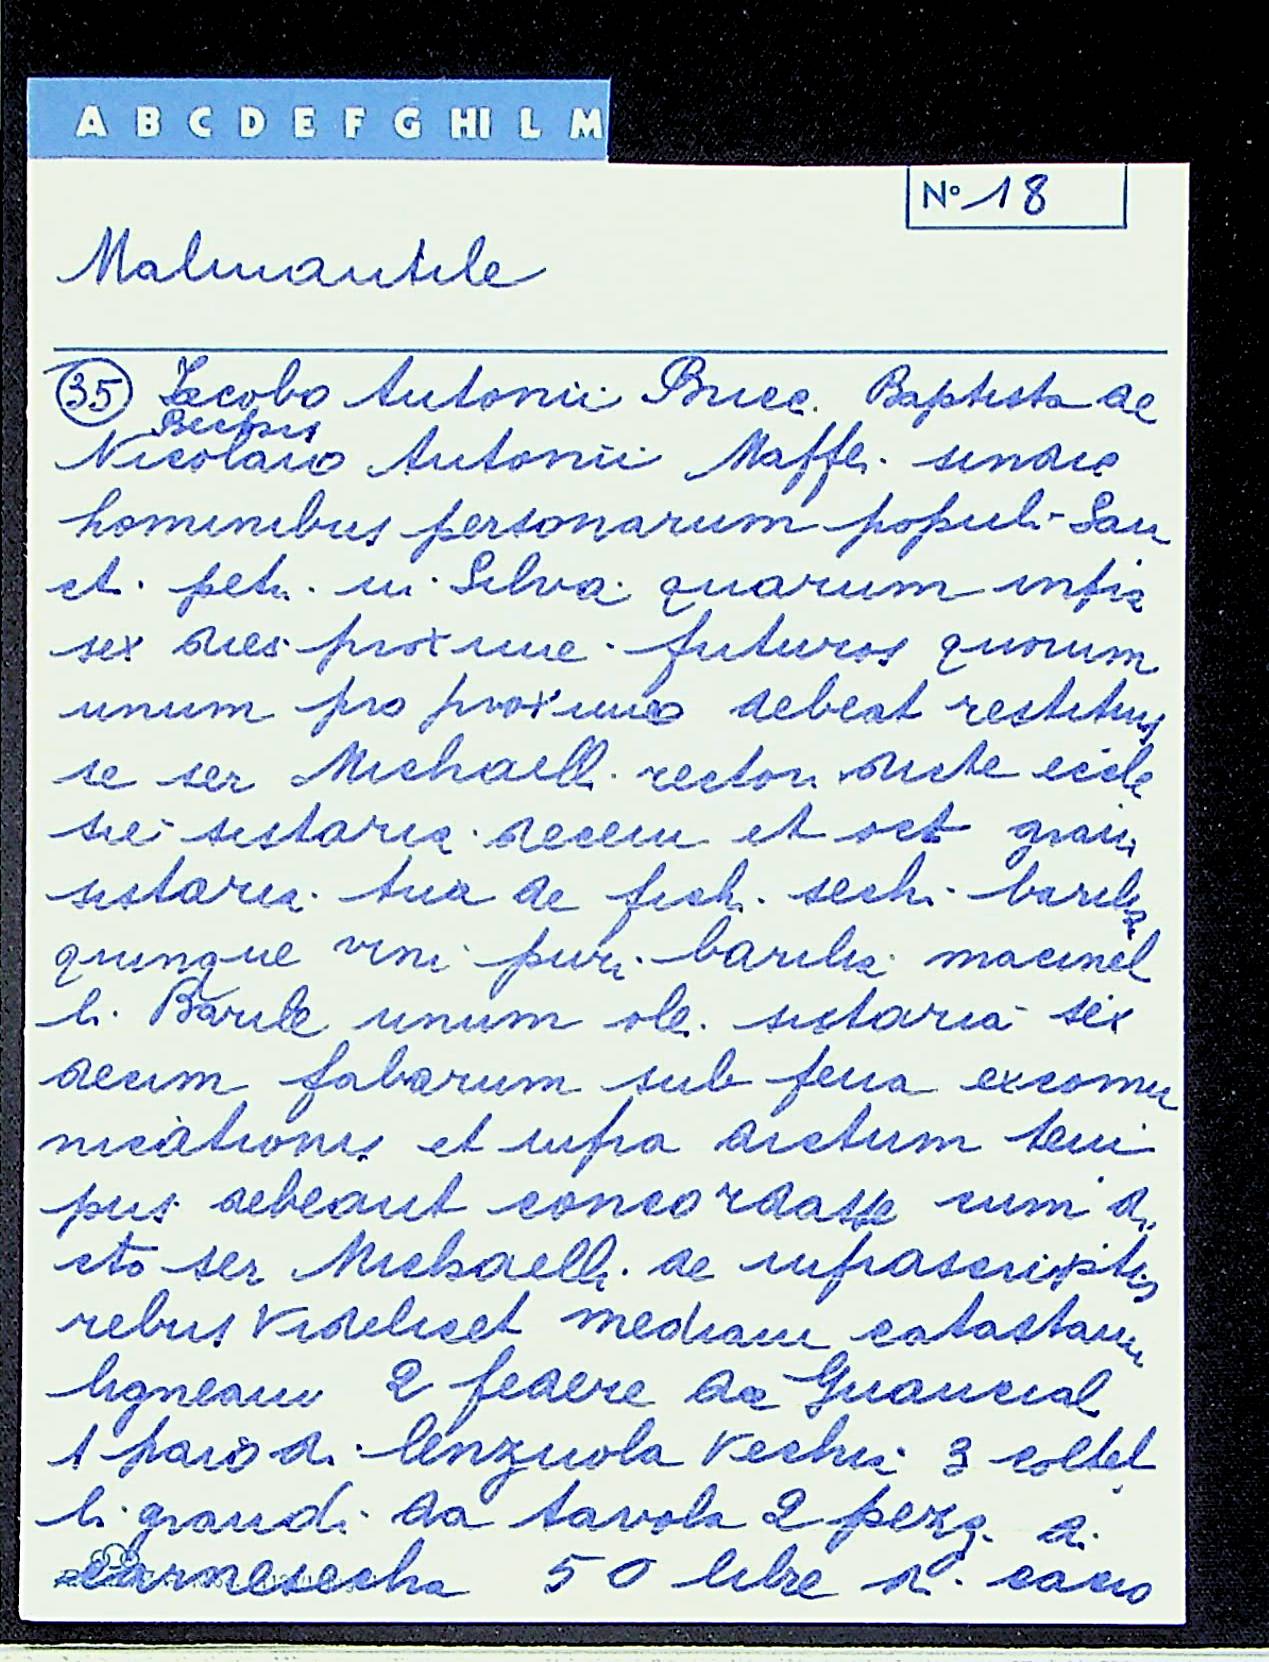 A B C D E F G HI L M
N° 18
Malmantile
35 Iacobo Antonii Bucc. Baptista de
Nicolaio Antonii Maffei. sindic
hominibus personarum populi San
cti petri in Silva quarum infra
sex dies proxime futuros quorum
unum pro proximo debeat restitus
se ser Michaelli rectori dicte eccle
sie sistaria decem et oct grani
sistaria tria de fichi sechi barila
quinque vini puri barilia macinel
li. Barile unum olei sistaria sex
decim fabarum sub pena excomu
nicationis et infra dictum tem
pus debeant concordasse cum di
cto ser Michaelli de infrascriptis
rebus videlicet mediam catastam
ligneam 2 federe da Guancial
1 paio di lenzuola vechie 3 coltel
li grandi da tavola 2 pezzi di
carnesecha 50 libre di cacio